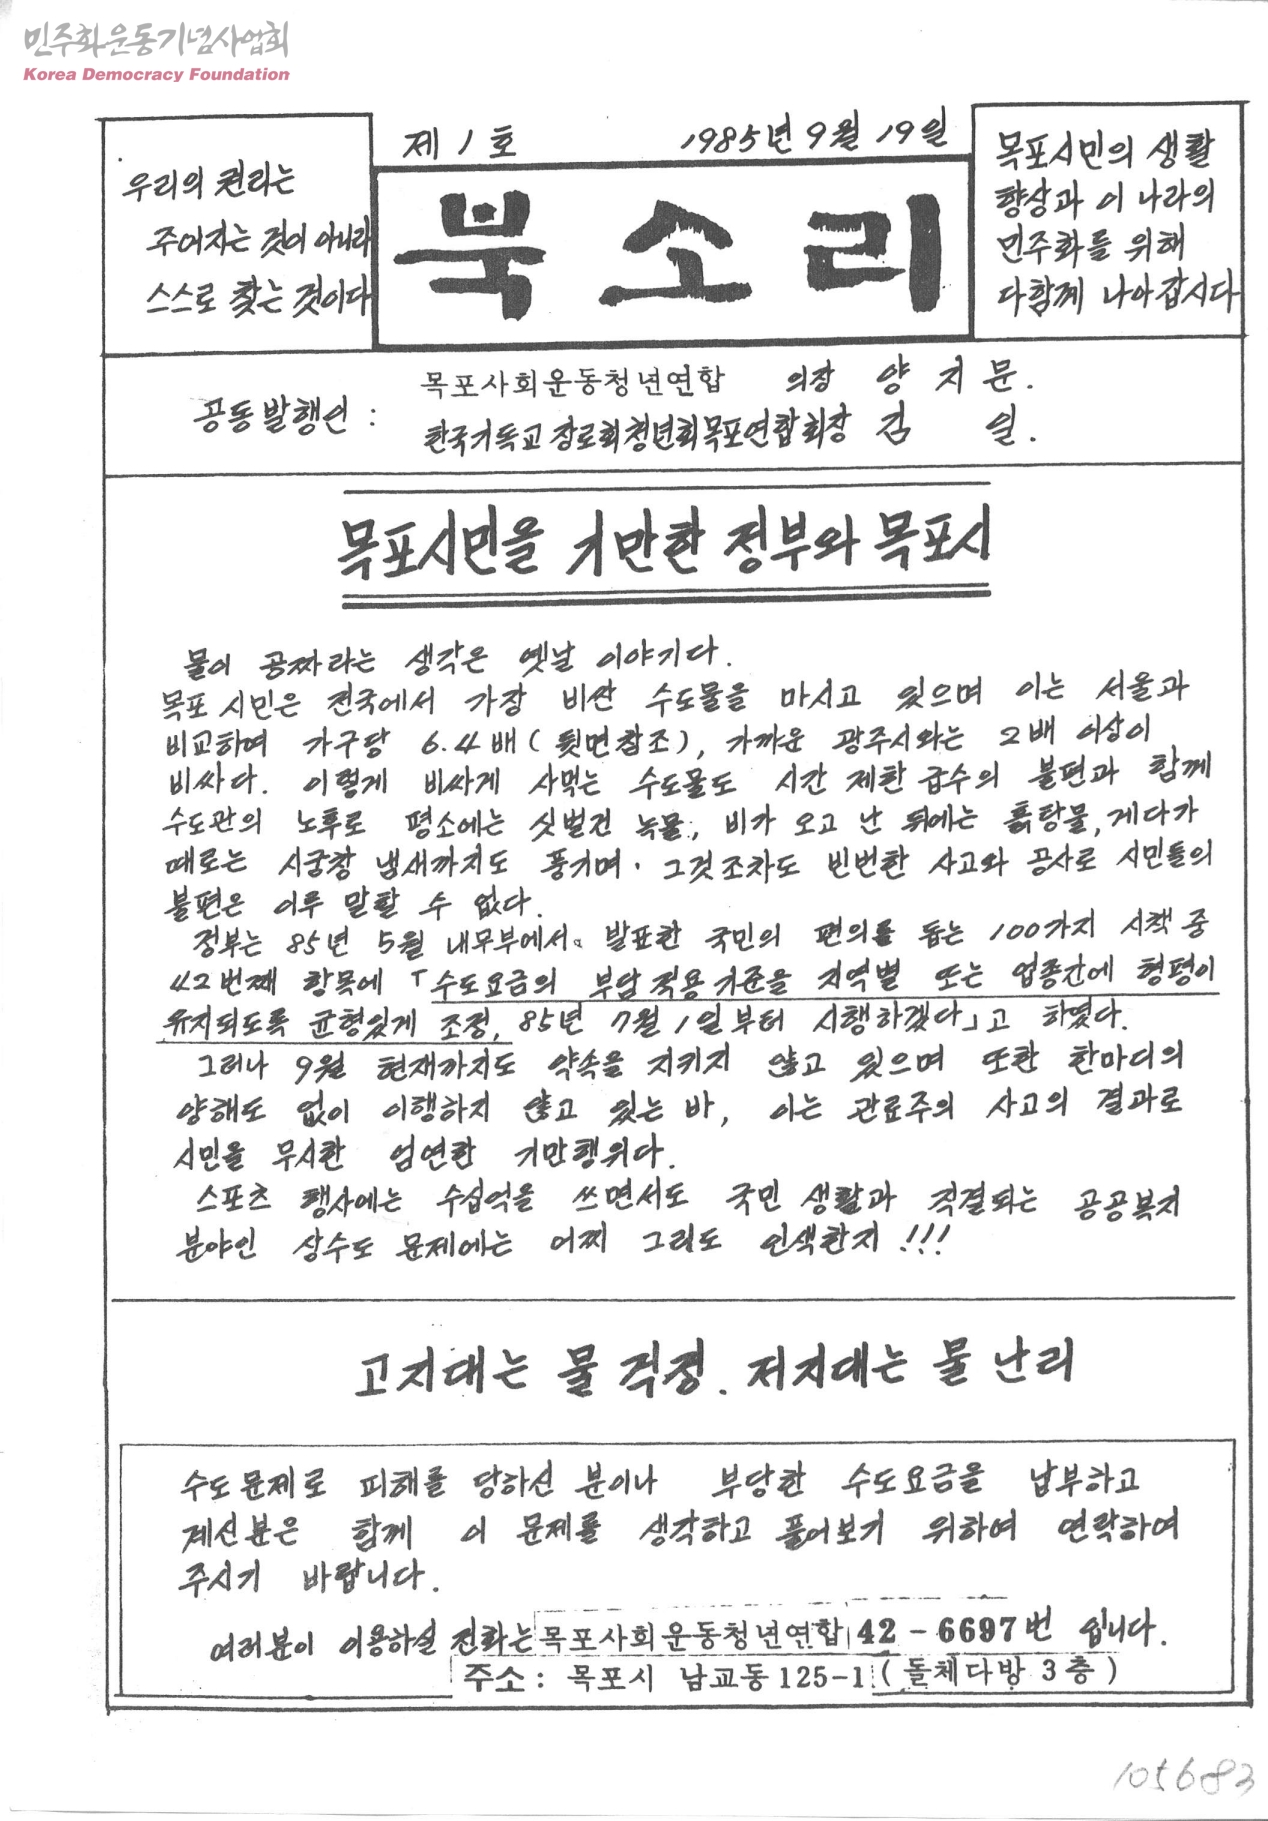 민주화운동기념사업회
Korea Democracy Foundation
우리의 권리는
주어지는 것이 아니라
스스로 찾는 것이다
제 1 호 1985년 9월 19일
북소리
목포시민의 생활
향상과 이 나라의
민주화를 위해
다함께 나아갑시다
공동발행인 :
목포사회운동청년연합 의장 양 지 문.
한국기독교 장로회청년회목포연합회장 김 일.
목포시민을 기만한 정부와 목포시
물이 공짜라는 생각은 옛날 이야기다.
목포 시민은 전국에서 가장 비싼 수도물을 마시고 있으며 이는 서울과
비교하여 가구당 6.4배 ( 뒷면참조 ), 가까운 광주시와는 2배 이상이
비싸다. 이렇게 비싸게 사먹는 수도물도 시간 제한 급수의 불편과 함께
수도관의 노후로 평소에는 싯벌건 녹물, 비가 오고 난 뒤에는 흙탕물, 게다가
때로는 시궁창 냄새까지도 풍기며. 그것조차도 빈번한 사고와 공사로 시민들의
불편은 이루 말할 수 없다.
정부는 85년 5월 내무부에서 발표한 국민의 편의를 돕는 100가지 시책 중
42번째 항목에 「수도요금의 부담 적용 기준을 지역별 또는 업종간에 형평이
유지되도록 균형있게 조정, 85년 7월 1일부터 시행하겠다」고 하였다.
그러나 9월 현재까지도 약속을 지키지 않고 있으며 또한 한마디의
양해도 없이 이행하지 않고 있는 바, 이는 관료주의 사고의 결과로
시민을 무시한 엄연한 기만행위다.
스포츠 행사에는 수십억을 쓰면서도 국민 생활과 직결되는 공공복지
분야인 상수도 문제에는 어찌 그리도 인색한지 !!!
고지대는 물 걱정. 저지대는 물 난리
수도문제로 피해를 당하신 분이나 부당한 수도요금을 납부하고
계신분은 함께 이 문제를 생각하고 풀어보기 위하여 연락하여
주시기 바랍니다.
여러분이 이용하실 전화는 목포사회운동청년연합 42-6697번 입니다.
주소 : 목포시 남교동 125-1 ( 돌체다방 3층 )
105683